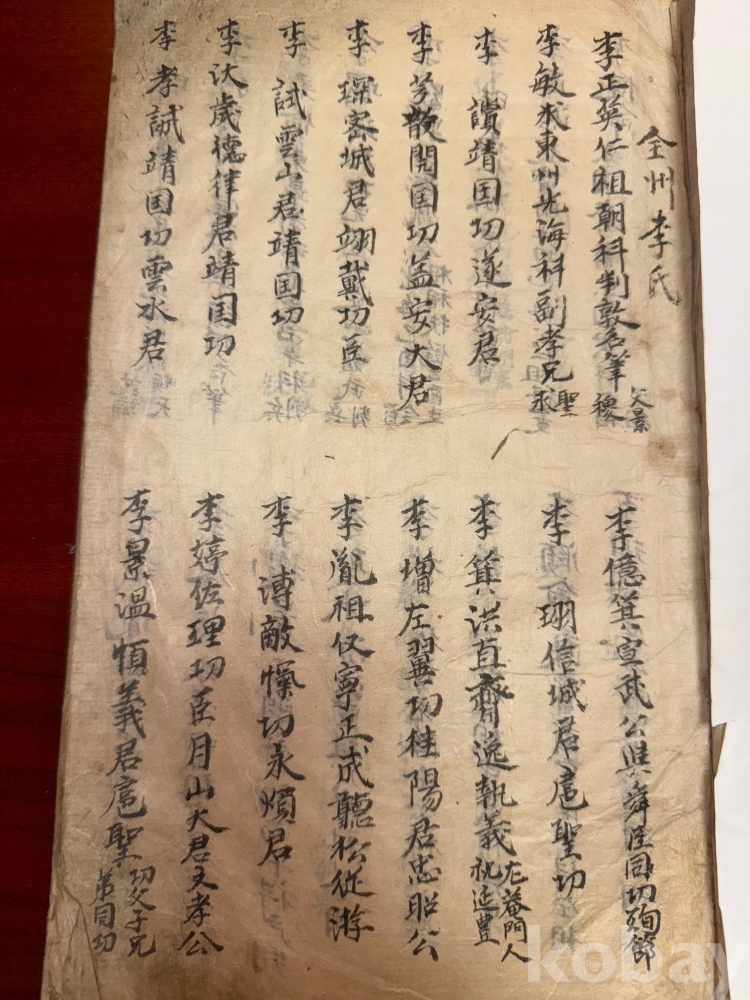 全州李氏
李正英仁祖朝科判敦名筆
父景稷
李敏求東州光海科副孝兄
聖求
李讃靖国功遂安君
李芬散開国功益安大君
李琛密城君翊戴功臣
李試雲山君靖国功
李汏歲德律君靖国功
李孝誠靖国功雲水君
李億箕宣武公與舜臣同功殉節
李珝信城君扈聖功
李箕洪直齋逸執義
尤菴門人
李增左翼功桂陽君忠昭公
李胤祖仅寧正成聽松從游
李漙敵愾功永順君
李婷佐理功臣月山大君文孝公
李景溫慎義君扈聖
功父子兄
弟同功
kobay